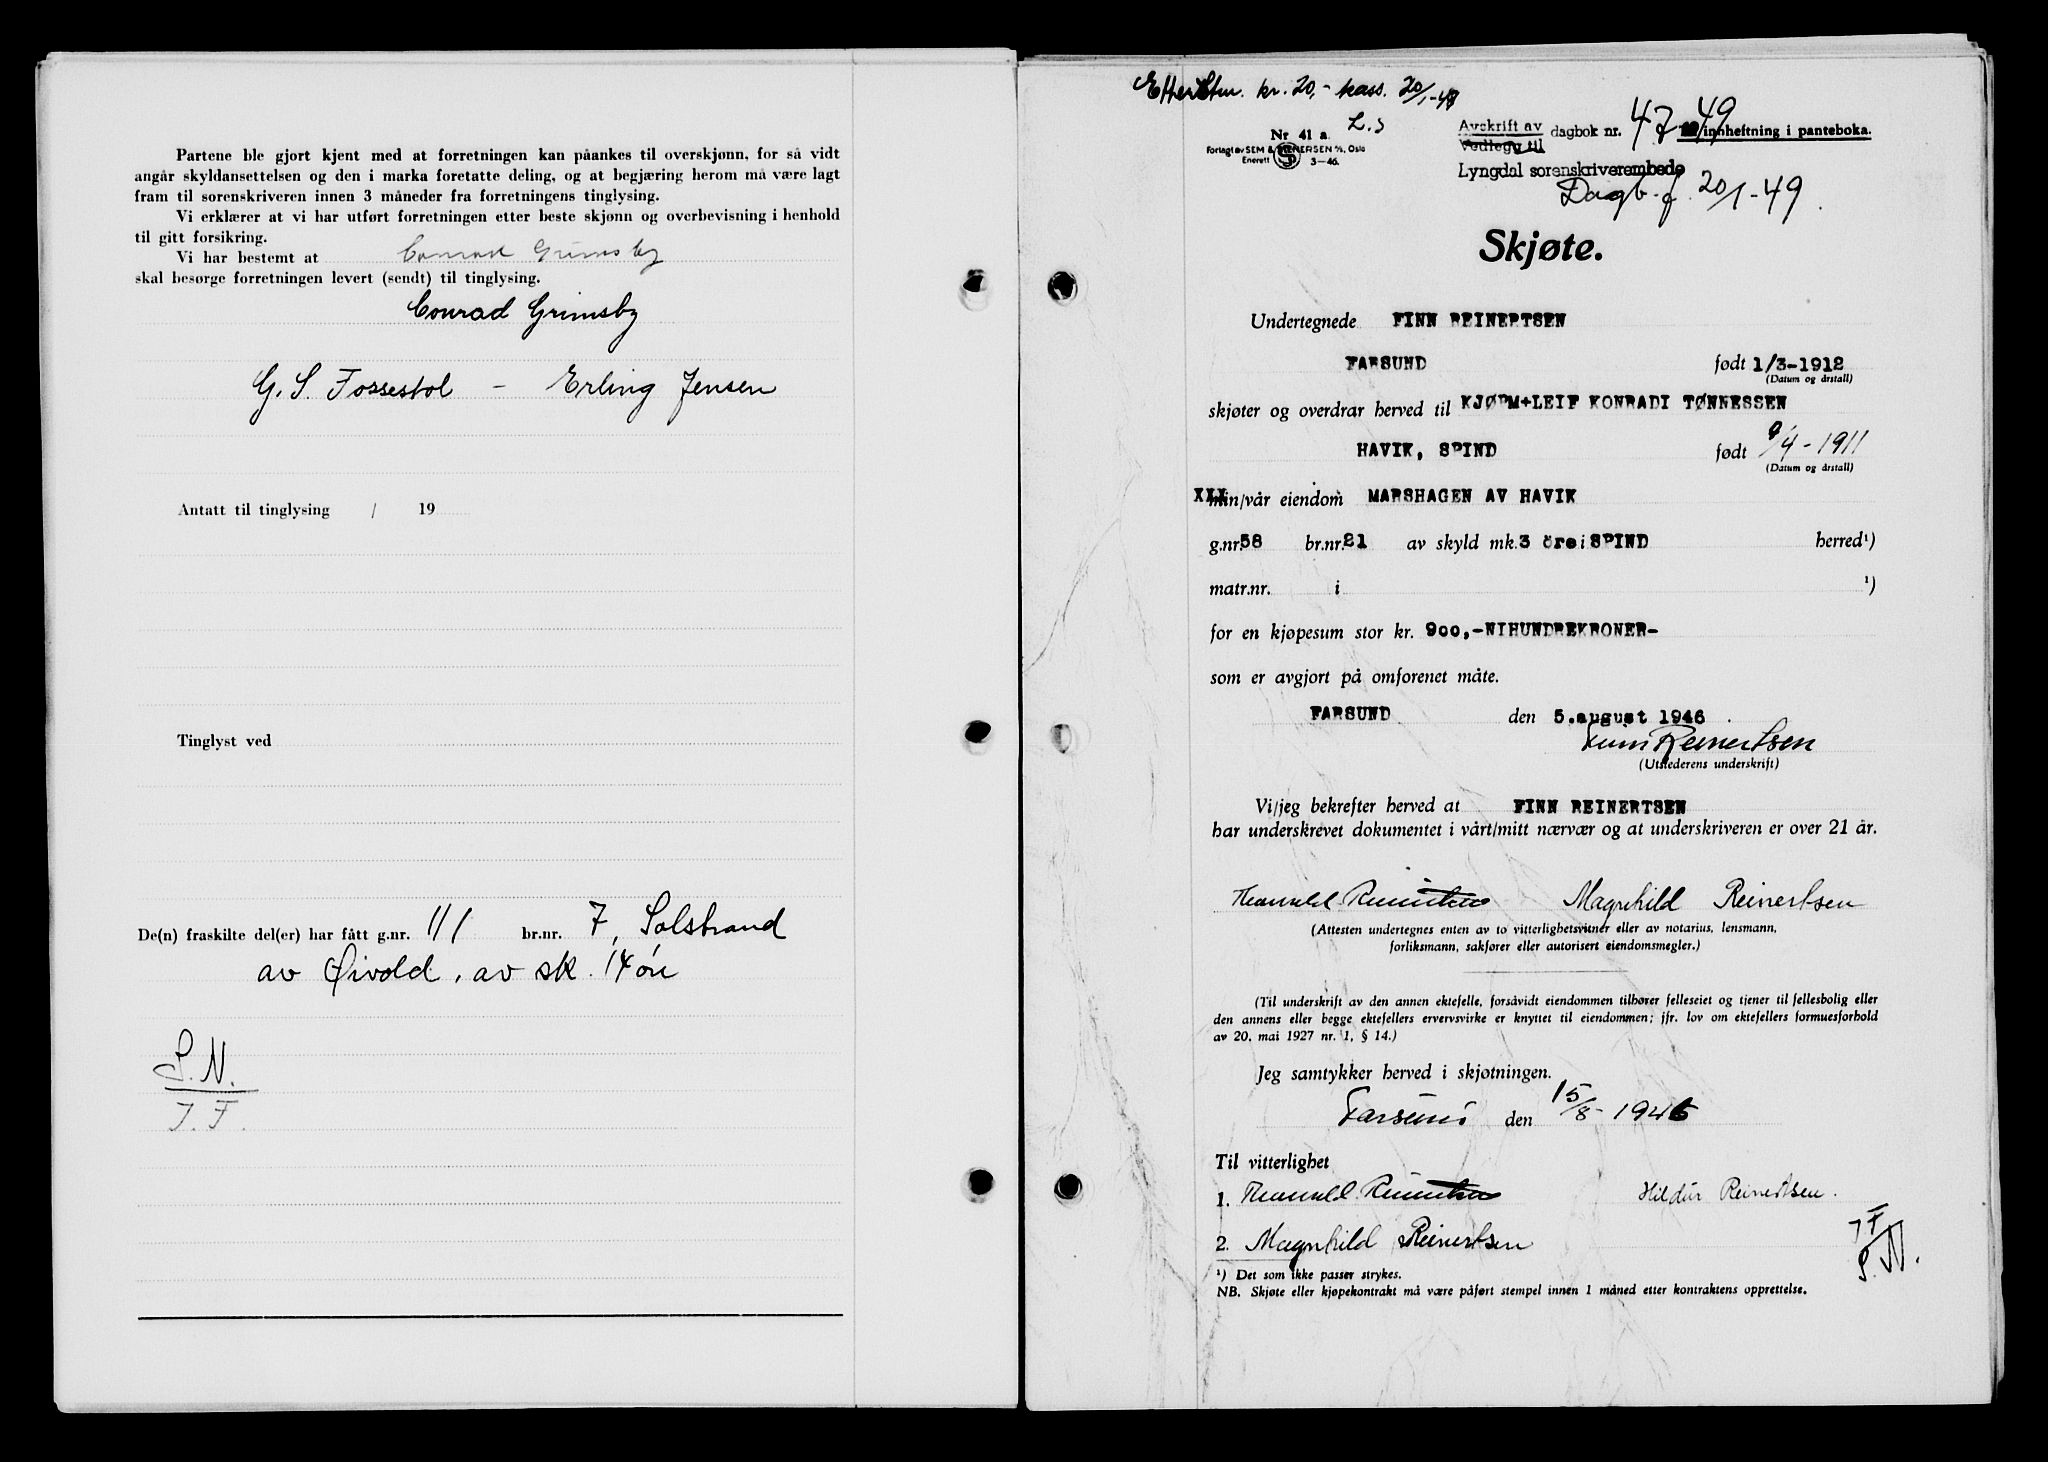 Partene ble gjort kjent med at forretningen kan påankes til overskjønn, for så vidt
angår skyldansettelsen og den i marka foretatte deling, og at begjæring herom må være lagt
fram til sorenskriveren innen 3 måneder fra forretningens tinglysing.
Vi erklærer at vi har utført forretningen etter beste skjønn og overbevisning i henhold
til gitt forsikring.
Vi har bestemt at Conrad Grimsby
skal besørge forretningen levert (sendt) til tinglysing.
Conrad Grimsby
G. S. Fossestol - Erling Jensen
Antatt til tinglysing / 19
Tinglyst ved
De(n) fraskilte del(er) har fått g.nr. 111 br.nr. 7, Solstrand
av Øivold, av sk. 14 øre
S.N.
J.F.
Etterstm. kr. 20,- kass. 20/1-49
L.S
Nr. 41 a.
Forlagt av SEM & STENERSEN A/S, Oslo
Enerett S 3-46.
Avskrift av dagbok nr. 47-49 innheftning i panteboka.
Vedlegg til
Lyngdal sorenskriverembede
Dagb. f. 20/1-49.
Skjøte.
Undertegnede FINN REINERTSEN
FARSUND født 1/3-1912
(Datum og årstall)
skjøter og overdrar herved til KJØPM+LEIF KONRADI TØNNESSEN
HAVIK, SPIND født 9/4-1911
(Datum og årstall)
XXXmin/vår eiendom MARSHAGEN AV HAVIK
g.nr. 58 br.nr. 21 av skyld mk. 3 öre i SPIND herred ¹)
matr.nr. i ¹)
for en kjøpesum stor kr. 900,-NIHUNDREKRONER-
som er avgjort på omforenet måte.
FARSUND den 5.august 1946
Finn Reinertsen
(Utstederens underskrift)
Vi/jeg bekrefter herved at FINN REINERTSEN
har underskrevet dokumentet i vårt/mitt nærvær og at underskriveren er over 21 år.
Reinertsen Magnhild Reinertsen
(Attesten undertegnes enten av to vitterlighetsvitner eller av notarius, lensmann,
forliksmann, sakfører eller autorisert eiendomsmegler.)
(Til underskrift av den annen ektefelle, forsåvidt eiendommen tilhører felleseiet og tjener til fellesbolig eller
den annens eller begge ektefellers ervervsvirke er knyttet til eiendommen; jfr. lov om ektefellers formuesforhold
av 20. mai 1927 nr. 1, § 14.)
Jeg samtykker herved i skjøtningen.
Farsund den 15/8-1946
Til vitterlighet
1. Reinertsen Hildur Reinertsen.
2. Magnhild Reinertsen
JF
S.N.
¹) Det som ikke passer strykes.
NB. Skjøte eller kjøpekontrakt må være påført stempel innen 1 måned etter kontraktens opprettelse.